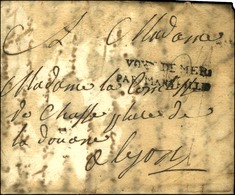 A Madame
VOIE DE MER
PAR MARSEILLE
Madame la Comtesse
De Chasse place de
la douane
a Lyon